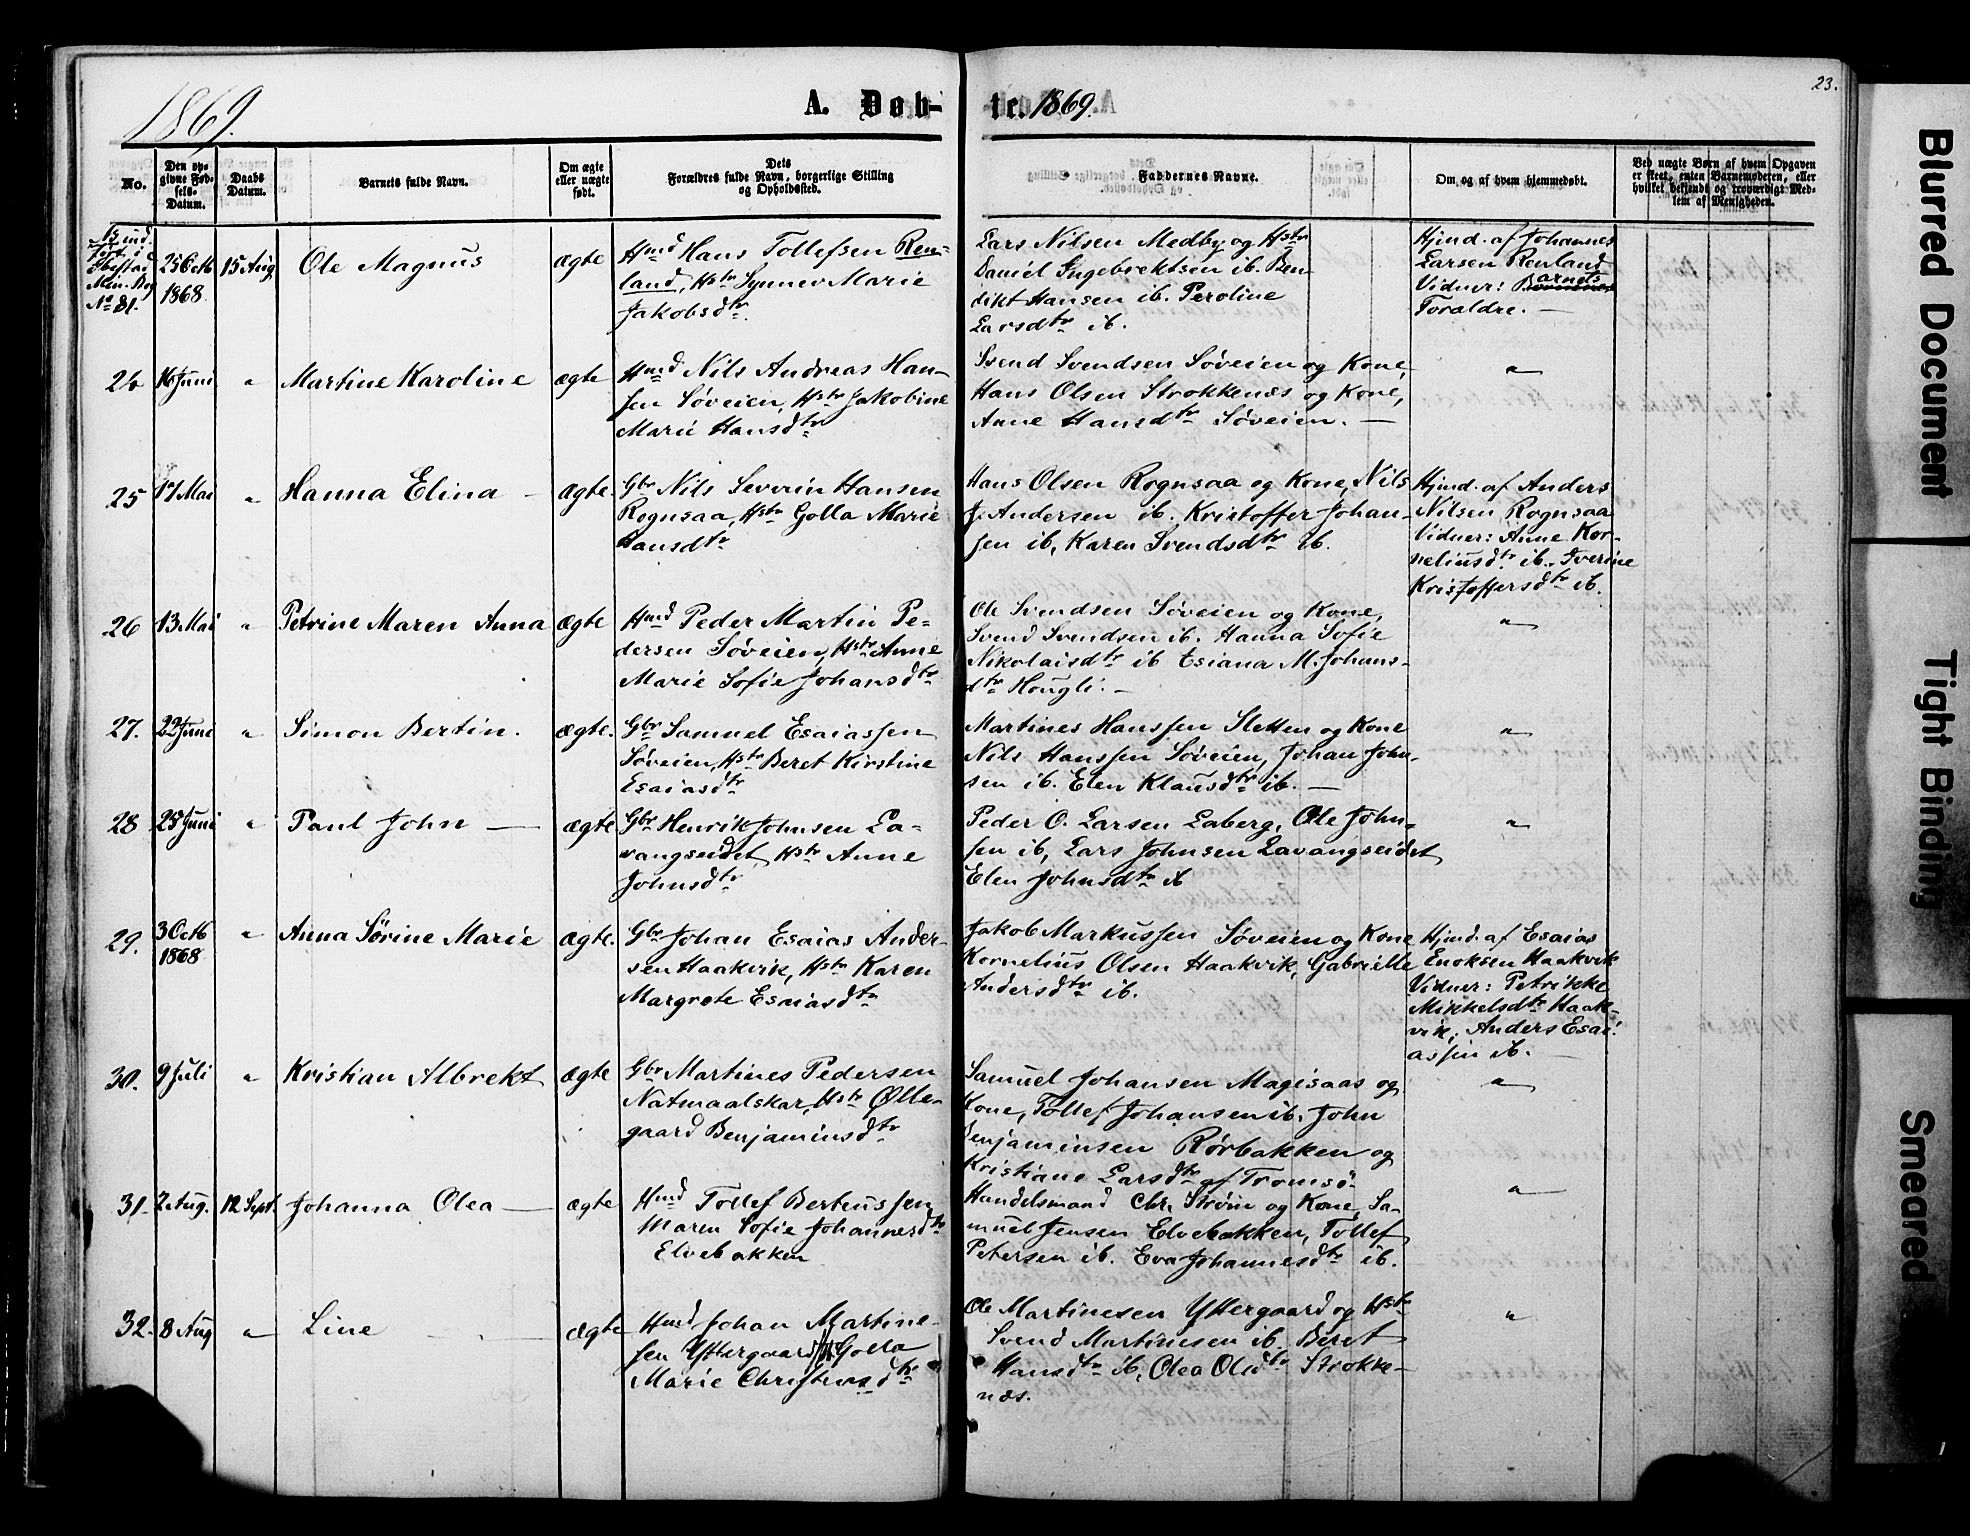 1869.
A. Døb-
te. 1869.
23.
No.
Den op-
givne Fød-
sels-
Datum.
Daabs
Datum.
Barnets fulde Navn.
Om ægte
eller uægte
født.
Dets
Forældres fulde Navn, borgerlige Stilling
og Opholdssted.
Faddernes Navne.
Om og af hvem hjemmedøbt.
Ved uægte Børn af hvem Opgaven
er skeet, enten Barnemoderen, eller
hvilket bekjendt og troværdigt Med-
lem af Menigheden.
Ibestad
Min. Bog
No 81.
25 Octb
1868
15 Aug
Ole Magnus
ægte
Hmd Hans Tollefsen Ren-
land, Hstr Synnev Marie
Jakobsdtr.
Lars Nilsen Medby og Hstr
Daniel Ingebrektsen ib. Ben
dikt Hansen ib. Peroline
Larsdtr ib.
Hjmd. af Johannes
Larsen Renland
Vidner: Barnets
Forældre. —
24
16 Juni
"
Martine Karoline
ægte
Hmd Nils Andreas Han-
sen Søveien, Hstr Jakobine
Marie Hansdtr
Svend Svendsen Søveien og Kone,
Hans Olsen Strokkenes og Kone,
Anne Hansdtr Søveien. —
"
25
17 Mai
"
Hanna Elina —
ægte.
Gbr Nils Severin Hansen
Rognsaa, Hstr Golla Marie
Hansdtr
Hans Olsen Rognsaa og Kone, Nils
J. Andersen ib. Kristoffer Johan-
sen ib, Karen Svendsdtr ib.
Hjmd. af Anders
Nilsen Rognsaa
Vidner: Anne Kor-
neliusdtr ib. Iverine
Kristoffersdtr ib.
26
13 Mai
"
Petrine Maren Anna
ægte
Hmd Peder Martin Pe-
dersen Søveien, Hstr Anne
Marie Sofie Johansdtr
Ole Svendsen Søveien og Kone,
Svend Svendsen ib. Hanna Sofie
Nikolaisdtr ib Esiana M. Johans-
dtr Hougli. —
"
27.
22 Juni
"
Simon Bertin.
ægte.
Gbr Samuel Esaiassen
Søveien, Hstr Beret Kirstine
Esaiasdtr
Martines Hanssen Sletten og Kone
Nils Hanssen Søveien, Johan John-
sen ib. Elen Klausdtr ib. —
"
28
25 Juni
"
Paul John —
ægte
Gbr Henrik Johnsen La-
vangseidet, Hstr Anne
Johnsdtr
Peder O. Larsen Laberg, Ole John-
sen ib, Lars Johnsen Lavangseidet
Elen Johnsdtr ib
"
29.
3 Octb
1868
"
Anna Sørine Marie
ægte.
Gbr Johan Esaias Ander-
sen Haakvik, Hstr Karen
Margrete Esaiasdtr
Jakob Markussen Søveien og Kone
Kornelius Olsen Haakvik, Gabrielle
Andersdtr ib.
Hjmd. af Esaias
Enoksen Haakvik
Vidner: Petrikke
Mikkelsdtr Haak-
vik, Anders Esai-
assen ib. —
30.
9 Juli
"
Kristian Albrekt
ægte
Gbr Martines Pedersen
Natmaalskar, Hstr Olle-
gaard Benjaminsdtr
Samuel Johansen Magisaas og
Kone, Tollef Johansen ib. John
Benjaminsen Rørbakken og
Kristiane Larsdtr af Tromsö
"
31
2 Aug.
12 Sept.
Johanna Olea —
ægte
Hmd Tollef Berteussen
Maren Sofie Johannesdtr
Elvebakken
Handelsmand Chr. Strøm og Kone, Sa-
muel Jensen Elvebakken, Tollef
Petersen ib. Eva Johannesdtr ib.
"
32.
8 Aug
"
Line — —
ægte
Hmd Johan Martine-
sen Yttergaard, H Golla
Marie Christensdtr
Ole Martinesen Yttergaard og Hstr
Svend Martinesen ib, Beret
Hansdtr ib, Olea Olsdtr Strokke-
næs.
"
Blurred Document
Tight Binding
Smeared